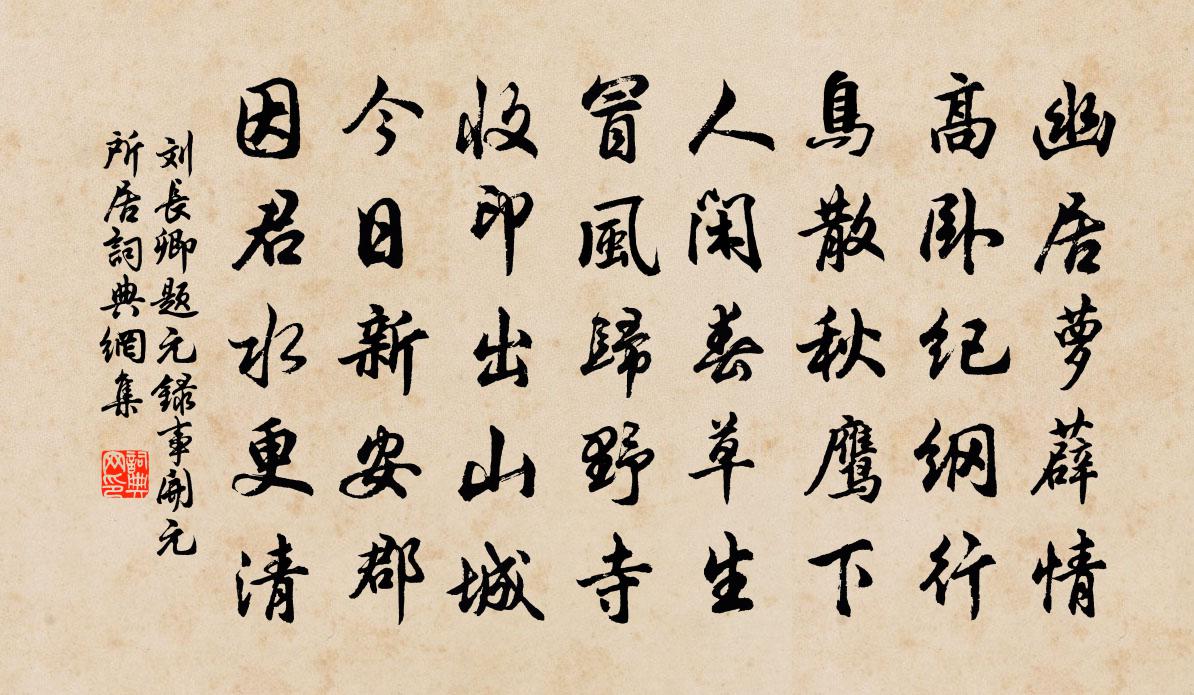 幽居萝薜情
高卧纪纲行
鳥散秋鹰下
人闲春草生
冒風歸野寺
收印出山城
今日新安郡
因君水更清
刘長卿题元録事開元
所居詞典網集
詞典网印